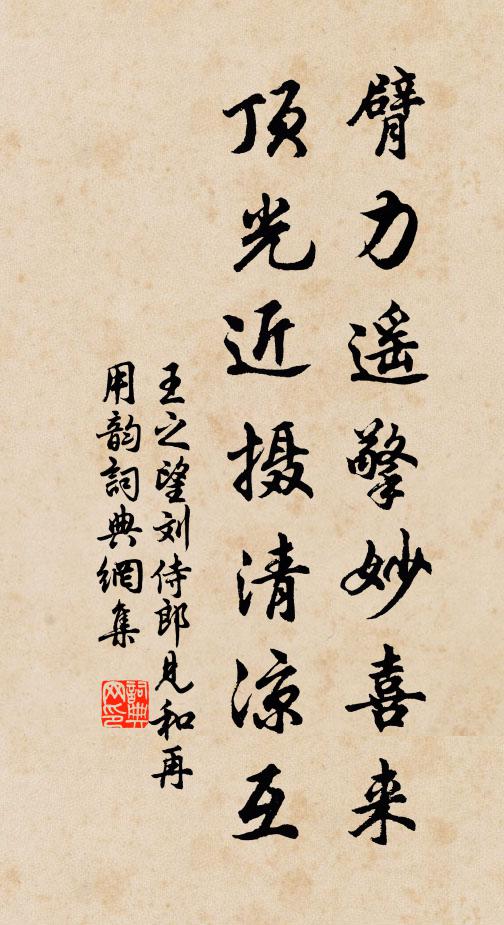 臂力遥擎妙喜来
顶光近摄清凉互
王之望刘侍郎见和再
用韵词典網集
詞典网印